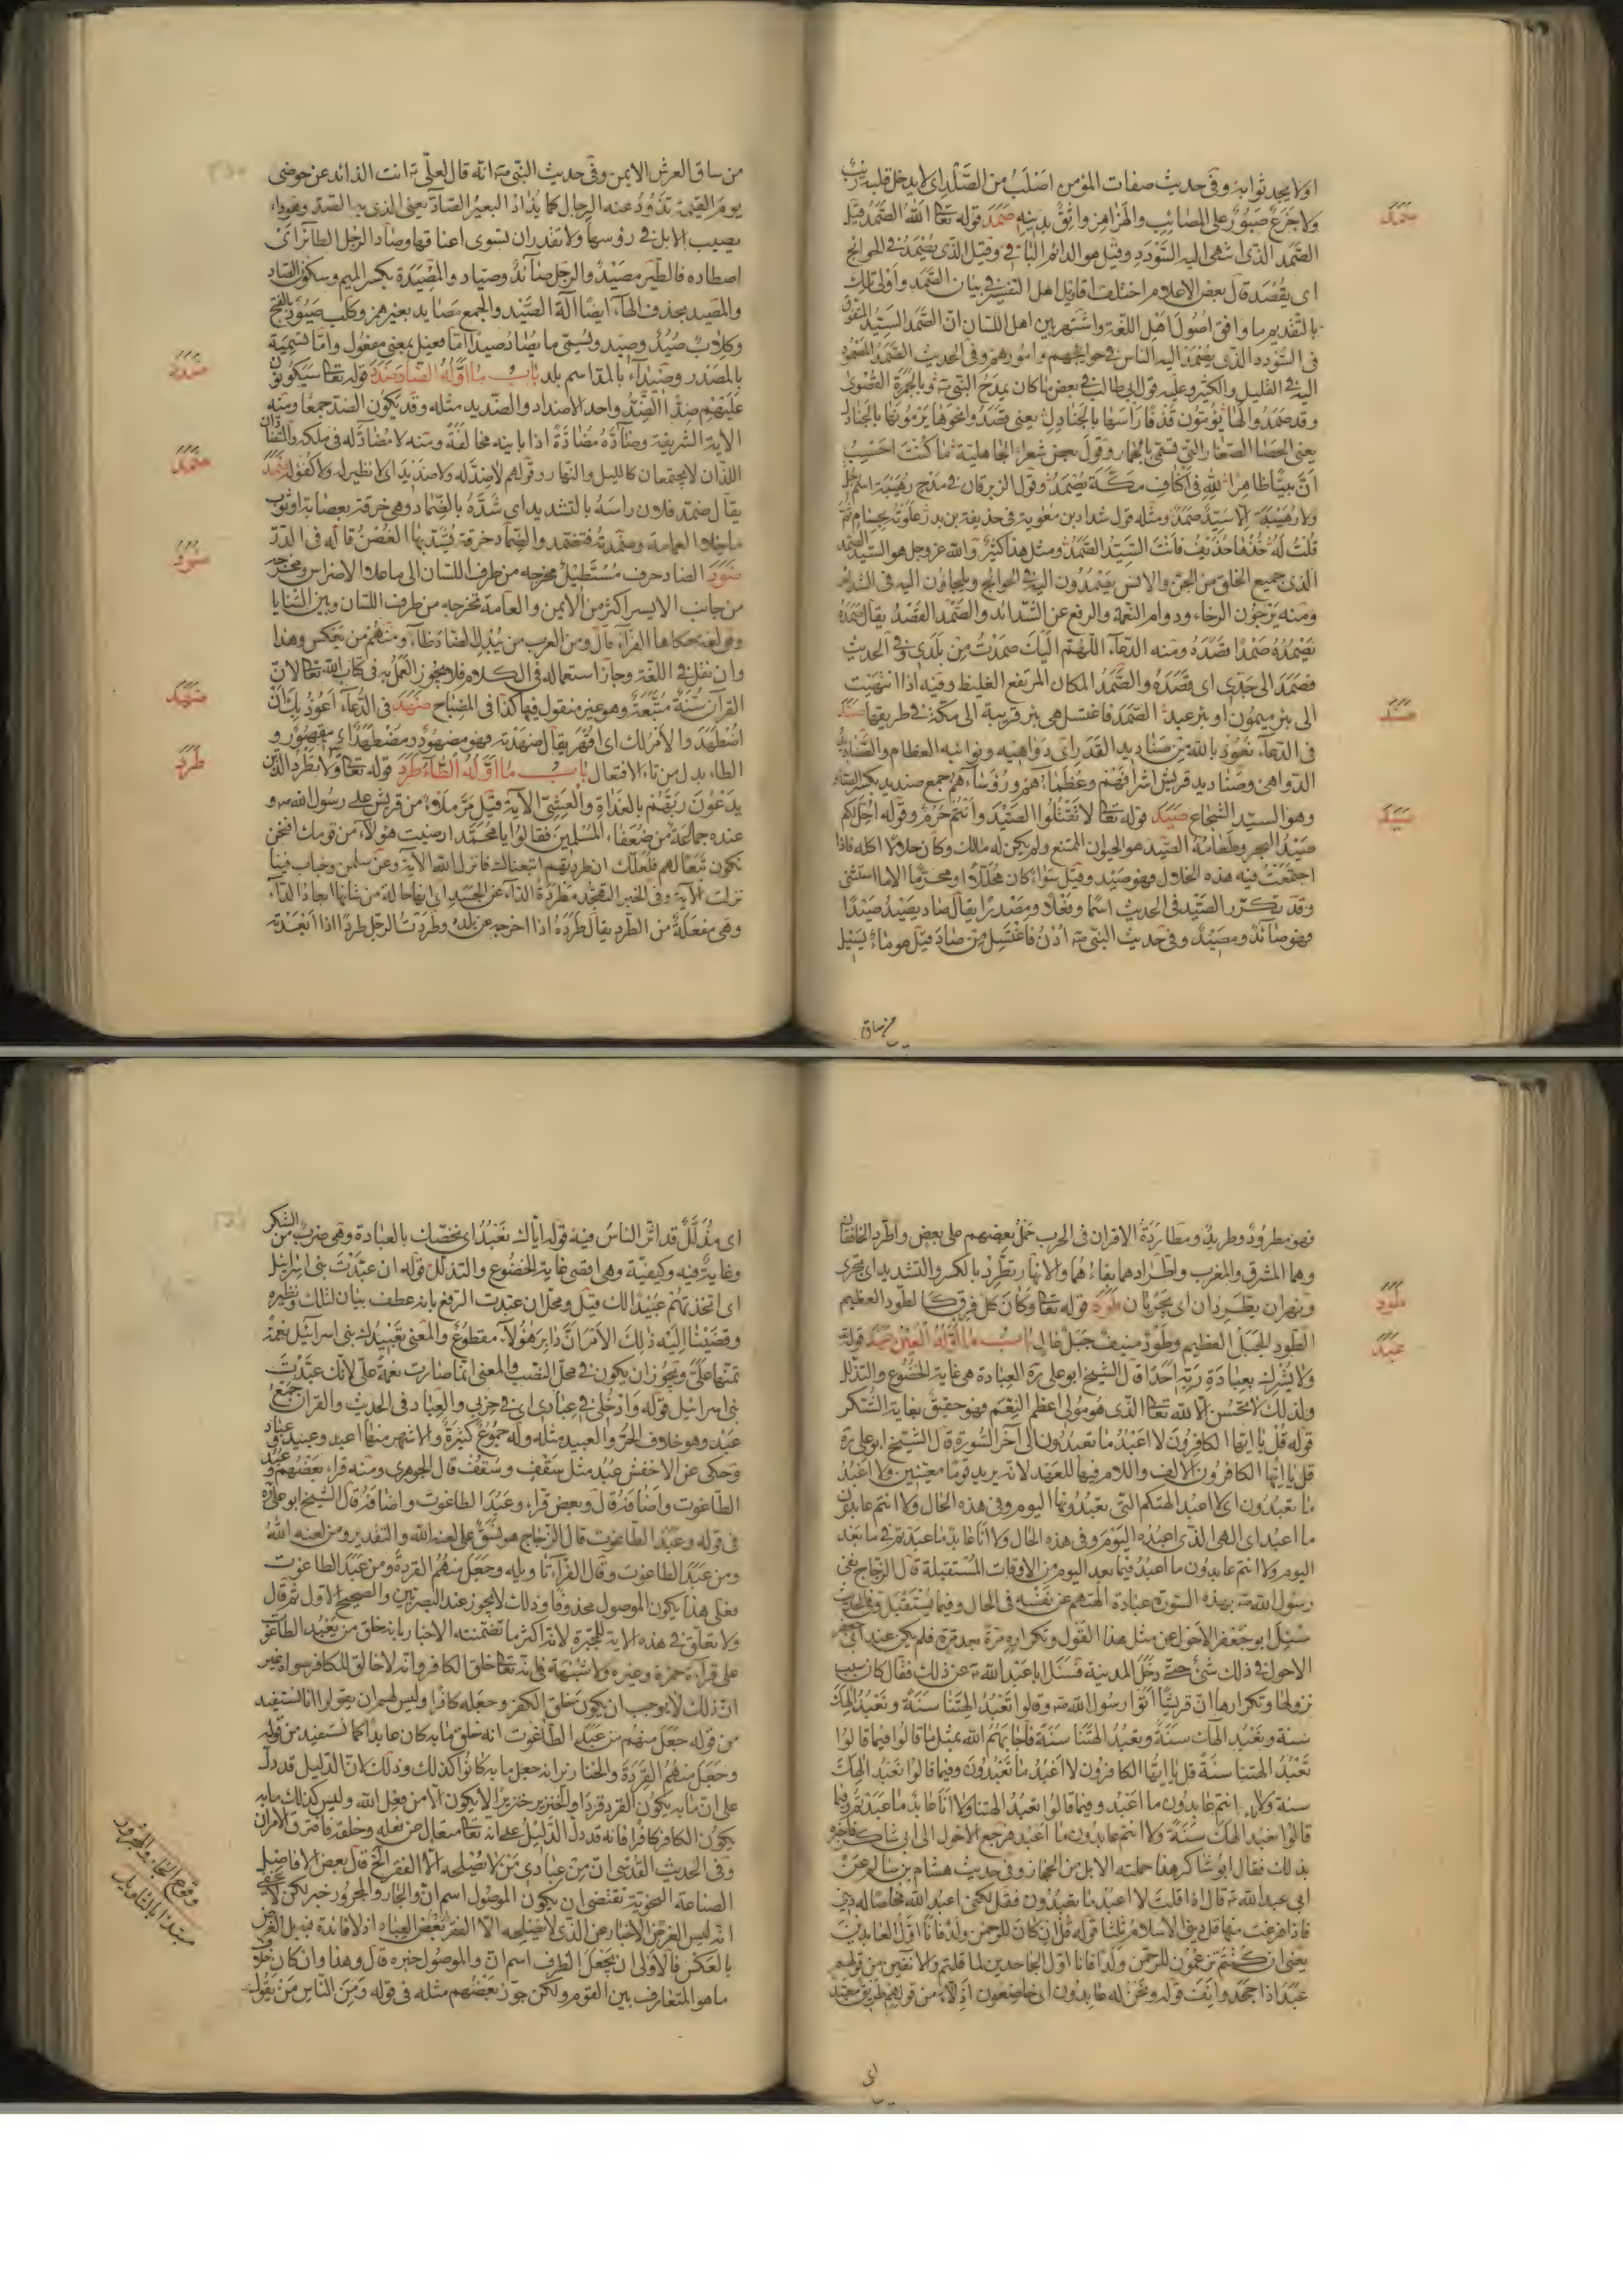 او لا يجد ثوابه وفى حديث صفات المؤمن اصلب من الصلد اى لا يدخل قلبه ريب
ولا جزع صبور على المصائب والهزاهز واثق بدينه صَمَدَ قوله تعالى الله الصَّمَدُ قيل
الصَّمَد الذى انتهى اليه السُّودَد وقيل هو الدائم الباقى وقيل الذى يُصْمَدُ فى الحوائج
اى يُقْصَد قال بعض الاعلام اختلف اقاويل اهل التفسير فى بيان الصَّمَد واولى تلك
بالتقديم ما وافق اصُول اَهْلِ اللّغة واشتهر بين اهل اللسان انّ الصَّمَد السَّيّدُ المتفوّق
فى السُّودد الذى يَصْمُدُ اليه الناس فى حوائجهم وامُورهم وفى الحديث الصَّمَدُ المصْمُودُ
اليه فى القليل والكثير وعليه قول ابى طالب فى بعض ما كان يمدح النبى ص وبالجمرة القصْوى
وقد صمدوا لها يَؤمّون قَذْفًا رَاسها بالجَنادِلِ يعنى قصَدُوا نحوها يَرْمُونها بالجنادل
يعنى الحصا الصّغار التى تسمّى بالجمار وقول بعض شعراء الجاهلية ما كنت احسِبُ
انَّ بيتًا ظاهرًا لِلّهِ فى اكنافِ مَكّةَ يُصْمَدُ وقول الزبرقان فى مدح رهيبة اسم رجل
ولا رَهيبةَ اِلّا سَيّدٌ صَمَدٌ ومثله قول شداد بن معٰوية فى حذيفة بن بدر عَلَوته بحسام ثمّ
قلت لَهُ خُذْها حُذَيفُ فانتَ السَّيّدُ الصَّمَدُ ومثل هذا كثيرٌ والله عز وجل هو السيّد الصّمد
الذى جميع الخلق من الجنّ والانس يَصْمُدُون اليه فى الحوائج ويلجاؤن اليه فى الشدائد
ومنه يَرْجُون الرخاء ودوام النعمة والرفع عن الشّدائد والصَّمْد القَصْدُ يقال صَمَدَهُ
يَصْمُدُهُ صَمْدًا قَصَدَهُ ومنه الدعاء اللّهُمّ اليْكَ صَمَدْتُ مِنْ بلَدى وفى الحديث
فصَمَدَ الى جَدْى اى قَصَدَهُ والصَّمْدُ المكان المرتفع الغليظ وفيه اذا انتهيت
الى بئر ميمون او بئر عبد الصَّمَد فاغتسل هى بئر قريبة الى مكة فى طريقها صَنَدَ
فى الدعاء نعوذ باللّه من صَناديد القَدَر اى دَواهِيه ونوائبه العظام والصَّناديد
الدواهى وصَناديد قريش اشرافهُم وعُظَماءُهم ورُؤَساءُهم جمع صنديد بكسر الصاد
وهو السيّد الشجاع صَيَدَ قوله تعالى لا تَقْتُلُوا الصَّيْدَ وانتُم حُرُمٌ وقوله احِلّ لكم
صَيْدُ البحر وطَعامُهُ الصّيد هو الحيوان الممتنع ولم يكن له مالك وكان حلالا اكله فاذا
اجتمَعتْ فيه هذه الخلال فهو صَيْد وقيل سَواءٌ كان مُحَلّلًا او مُحَرّما الا ما استثنى
وقد تكرّر الصّيْد فى الحديث اسمًا وفِعْلًا ومصْدرًا يقال صاد يَصيدُ صَيْدًا
فهو صائدٌ ومَصيْدٌ وفى حديث النبى ص اُدْنُ فاغْتَسِل مِنْ صاد قيل هو ماءٌ يسيْل
من ساق
صمد
صند
صيد
من ساق العرش الايمن وفى حديث النبى ص انّه قال لعلىّ ع انت الذائد عن حوضى
يومَ القيٰمة تَذُودُ عنه الرجال كما يُذاد البعيرُ الصّاد يعنى الذى به الصّيَد وهو داء
يصيب الابل فى رؤسها ولا تقدر ان تلوى اعناقها وصاد الرّجُل الطائر اىْ
اصطاده فالطّير مَصيْدٌ والرجل صائدٌ وصيّاد والمِصْيَدَة بكسر الميم وسكون الصّاد
والمِصْيد بحذف الهاء ايضًا آلة الصّيْد والجمع مَصايد بغير همز وكلب صَيُودٌ بالفتح
وكِلابٌ صُيُدٌ وصِيد ويُسمّى ما يُصاد صَيدًا امّا فعيل بمعنى مفعول وامّا تسمية
بالمصْدر وصَيْداء بالمدّ اسم بلد بابُ ما اَوّلُهُ الضّاد ضَدَدَ قوله تعالى سَيَكُونُونَ
عَلَيْهِمْ ضِدًّا الضِّدُّ واحد الاضداد والضّديد مثله وقد يكون الضدّ جمعًا ومنه
الاية الشريفة وضادَّهُ مُضادّةً اذا باينه مخالفةً ومنه لا مُضادَّ له فى ملكه والضّدّان
اللّذان لا يجتمعان كالليل والنهار وقولهم لا ضِدّ له ولا ضديد اى لا نظير له ولا كفو له ضَمَدَ
يقال ضمّد فلان راسَهُ بالتشديد اى شدّهُ بالضِّماد وهى خرقة بعصابة او ثوب
ما خلا العمامة وضمّدته فتضمّد والضِّماد خرقة يُشَدّ بها العُضْو قاله فى الدّرّ
ضَوَدَ الضاد حرف مُسْتَطيلٌ مخرجه من طرف اللسان الى ما على الاضراس ومخرجه
من جانب الايسر اكثر من الايمن والعامة تخرجه من طرف اللسان وبين الثّنايا
وهى لغة حكاها الفرّاء قال ومن العرب من يُبْدِل الضّاد ظاء ومنهُم من يعكس وهذا
وان نقل فى اللّغة وجاز استعماله فى الكلام فلا يجوز العَمَلُ به فى كتاب اللّه تعالى لانّ
القرآن سُنّةٌ مُتّبَعةٌ وهو غير منقول فيها كذا فى المصْباح ضَهَدَ فى الدُّعاء اعوذ بك اَنْ
اُضْطَهَدَ والاَمرُ لك اى اُقْهَر يقال ضهدته فهو مضهُودٌ ومُضْطَهَدٌ اى مقهُورٌ و
الطاء بدل من تاء الافتعال بابُ ما اَوّلُهُ الطّاء طَرَدَ قوله تعالى ولا تَطْرُدِ الّذين
يدعُونَ رَبَّهُمْ بالغَداةِ والعَشِىّ الآية قيل مَرّ مَلَأٌ من قريش على رسول الله ص و
عنده جماعةٌ من ضعفاء المُسْلمين فقالُوا يا مُحَمّد ارضيت هؤلاء من قومك افنحن
نكون تبَعًا لهم فلعلّك ان طردتهم اتبعناك فانزل الله الآية وعن سلمٰن وخباب فينا
نزلت الآية وفى الخبر التهجّد مَطْرَدَةُ الدّاء عن الجسَد اى انها حالة من شانها ابعاد الدّاء
وهى مَفعَلَة من الطّرد يقال طرَدَهُ اذا اخرجه عن بلده وطرَدْت الرّجل طردًا اذا ابْعَدْته
ضدد
ضمد
ضود
ضهد
طرد
فهو مطرُودٌ وطريدٌ ومطارَدةُ الاقران فى الحرب حَمْلُ بعضهم على بعض واطّرد الخافقان
وهما المشرق والمغرب واطّرادهما بقاءُهُما والانهار تطّرِد بالكسر والتشديد اى تجرى
ونهران يطّرِدان اى يَجْريان طَوَدَ قوله تعالى وكان كلّ فِرْقٍ كالطّود العظيم
الطّود الجبَل العَظيم وطَوْدٌ منيف جَبلٌ عالٍ بابُ ما اَوّلُهُ العَيْن عَبَدَ قوله
ولا يُشْرِك بِعِبادَةِ رَبّهِ اَحَدًا قال الشيخ ابو على ره العبادة هى غاية الخضُوع والتذلّل
ولذلك لا تحسُن الّا للّه تعالى الذى هو مُولى اعظم النِّعَم فهو حقيقٌ بغاية الشكر
قوله قُل يا ايّها الكافِرُونَ لا اعْبُدُ ما تعبُدُون الى آخر السُّورة قال الشيخ ابو على ره
قل يا ايّها الكافرون الالف واللام فيها للعَهْد لانّه يريد قومًا معيّنين ولا اَعْبُدُ
ما تعبُدُون اى لا اعبُد الهتكم التى تعبُدُونها اليوم وفى هذه الحال ولا انتم عابدون
ما اعبد اى الهى الذى اعبُدُه اليَوْم وفى هذه الحال ولا انَا عابدٌ ما عبَدتم فيما بَعْد
اليوم ولا انتم عابدون ما اعبُدُ فيما بعد اليوم من الاوقات المُسْتقبلة قال الزجّاج نفى
رسول الله ص بهذه السّورة عبادة الهتهم عن نَفْسِه فى الحال وفيما يُسْتَقْبَل وفى الحديث
سُئِلَ ابو جَعْفر الاحْول عن مثل هذا القول وتكراره مَرّةً بعد مَرّة فلم يكن عند ابى جعفر
الاحول فى ذلك شئ حتى دخَلَ المدينة فسَئَل ابا عَبْد الله ع عن ذلك فقال كان سبب
نزولها وتكرارها انّ قريشًا اتَوا رسُول الله ص وقالوا تَعْبُدُ الهتنا سَنَةً ونعْبُدُ الهَكَ
سنة وتعْبُد الهتنا سنةً ونعبُد الهك سنةً فاجابَهُم اللّه بمثل ما قالُوا فيما قالُوا
تَعْبُدُ الهتنا سنةً قل يا ايّها الكافرُون لا اعْبُدُ ما تَعْبُدُونَ وفيما قالُوا نعبُد الهك
سنة ولا انتم عابدُون ما اعبُد وفيما قالُوا تعبُدُ الهتنا ولا انا عابدٌ ما عبَدْتُم وفيما
قالوا نعبُد الهك سنَةً ولا انتم عابدون ما اعبد فرجع الاحول الى ابى شاكر فاخبره
بذلك فقال ابو شاكر هذا حملته الابل من الحجاز وفى حديث هشام بن سالم عنْ
ابى عبد الله ع قال اذا قلتَ لا اعبُد ما تعبدون فقل لكنى اعبد اللّه مخلصًا له دينى
فاذا فرغت منها قل دينى الاسلام ثلثا قوله قُلْ ان كان للرحمٰن ولدٌ فانا اوّل العابدين
يعنى ان كنتُم تزعمون للرحمٰن ولدًا فانا اوّل الجاحدين لما قلتم والآنفين من قولهم
عَبِدَ اذا جحَدَ واَنِفَ قوله ونحن له عابدون اى خاضعون اذلّاء من قولهم طريق معبّد
اى
طود
عبد
اى مُذَلّلٌ قد اثّر الناسُ فيه قوله ايّاك نَعْبُدُ اى نخصّك بالعبادة وهى ضربٌ من الشكر
وغاية فيه وكيفيّة وهى اقصى غاية الخضُوع والتذلّل قوله ان عبّدْتَ بنى اسْرائيل
اى اتخذتهُم عَبيدًا لك قيل ومحلّ ان عبّدت الرّفع بانه عطف بيان لتلك ونظيره
وقَضَيْنا اِليْه ذٰلِكَ الاَمْرَ انّ دابِرَ هٰؤُلاءِ مقطُوعٌ والمعنى تَعْبيدُك بنى اسرائيل نعمةٌ
تمنّها علىَّ ويجُوز ان يكون فى محلّ النّصْب والمعنى انّما صارت نعمةً علىّ لانّك عبّدْتَ
بنى اسرائيل قوله وَادْخُلِى فى عبادى اى فى حِزْبى والعِباد فى الحديث والقرآن جَمْعُ
عَبْد وهو خلاف الحُرّ والعبيد مثله وله جُمُوعٌ كثيرةٌ والاشهر منها اعبد وعبيد وعباد
وحكى عن الاخفش عُبُد مثل سَقْف وسُقُف قال الجوهرى ومنه قرأ بَعْضُهُم وعُبُد
الطّاغوت واضافه قال وبعض قرأ وعَبُدَ الطّاغوت واضافه قال الشيخ ابو على ره
فى قوله وعَبَد الطّاغوت قال الزجّاج هو نَسَقٌ على لعنه اللّه والتقدير ومن لعنه اللّهُ
ومن عَبَدَ الطاغوت وقال الفرّاء تاويله وجَعَل منهُم القِرَدة ومن عَبَد الطاغوت
فعلى هذا يكون الموصول محذوفًا وذلك لا يجوز عند البَصْريّين والصّحيح الاوّل ثم قال
ولا تعلّق فى هذه الاية للمجبرة لانّ اكثر ما تضَمّنته الاخبار بانه خلق من يَعْبُد الطّاغوت
على قراءة حمزة وغيره ولا شُبْهة فى انّه تعالى خلق الكافر وانّه لا خالق للكافر سواه غير
انّ ذلك لا يوجب ان يكون خلق الكُفْر وجعَله كافرًا وليس لهم ان يقولوا انّا نستفيد
من قوله جَعَل منهم مَنْ عَبَد الطّاغوت انه خلق ما به كان عابدًا كما نستفيد من قوله
وجَعَل منهُم القِردةَ والخنازير انه جعل ما به كانُوا كذلك وذلك لانّ الدّليل قد دلّ
على انّ ما به يكُون القرد قردًا والخنزير خنزيرًا لا يكون الّا من فعِل اللّه وليس كذلك ما به
يكون الكافر كافرًا فانه قد دلّ الدّليل على انه تعالى متعال عن فعله وخلقه فافترق الامران
وفى الحديث القُدْسى انّ مِنْ عبادى مَنْ لا يُصْلحه الّا الفقر الخ قال بعض الافاضل
الصناعة النحوية تقتضى ان يكون الموصُول اسم انّ والجار والمجرُور خبر لكن لا يخفى
انه ليس الغرض الاخبار عن الذى لا يُصْلحه الّا الفقر بَعْض العباد اذ لا فائدة فيه بل الغرض
بالعَكْس فالاَوْلى ان يُجْعَل الظرف اسم انّ والموصول خبره قال وهذا وان كان خلاف
ما هو المتعارف بين القوم ولكن جوّز بَعْضُهُم مثله فى قوله ومِنَ النّاسِ مَنْ يَقُولُ
وقوع الجار والمجرور
مبتدا بالتاويل